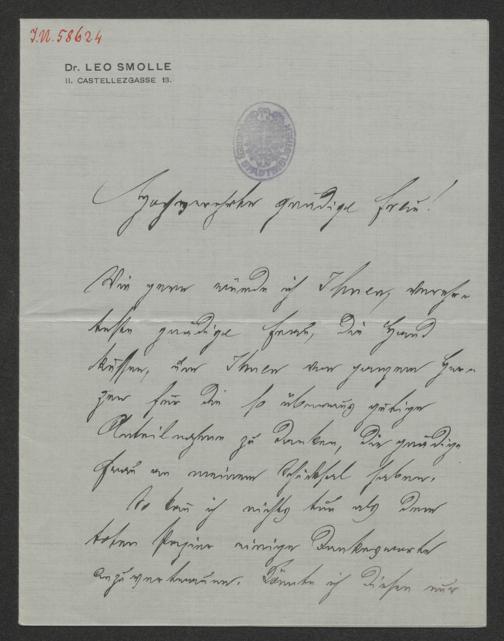 I.N. 58624
Dr. LEO SMOLLE
II. CASTELLEZGASSE 13.
Hochverehrte gnädige Frau!
Wie gern würde ich Ihnen, verehr-
teste gnädige Frau, die Hand
küssen, um Ihnen von ganzem Her-
zen für die so überaus gütige
Anteilnahme zu danken, die gnädige
Frau an meinem Schicksal haben.
So kann ich nichts tun als dem
toten Papier einige Dankesworte
anzuvertrauen. Könnte ich diesen nur